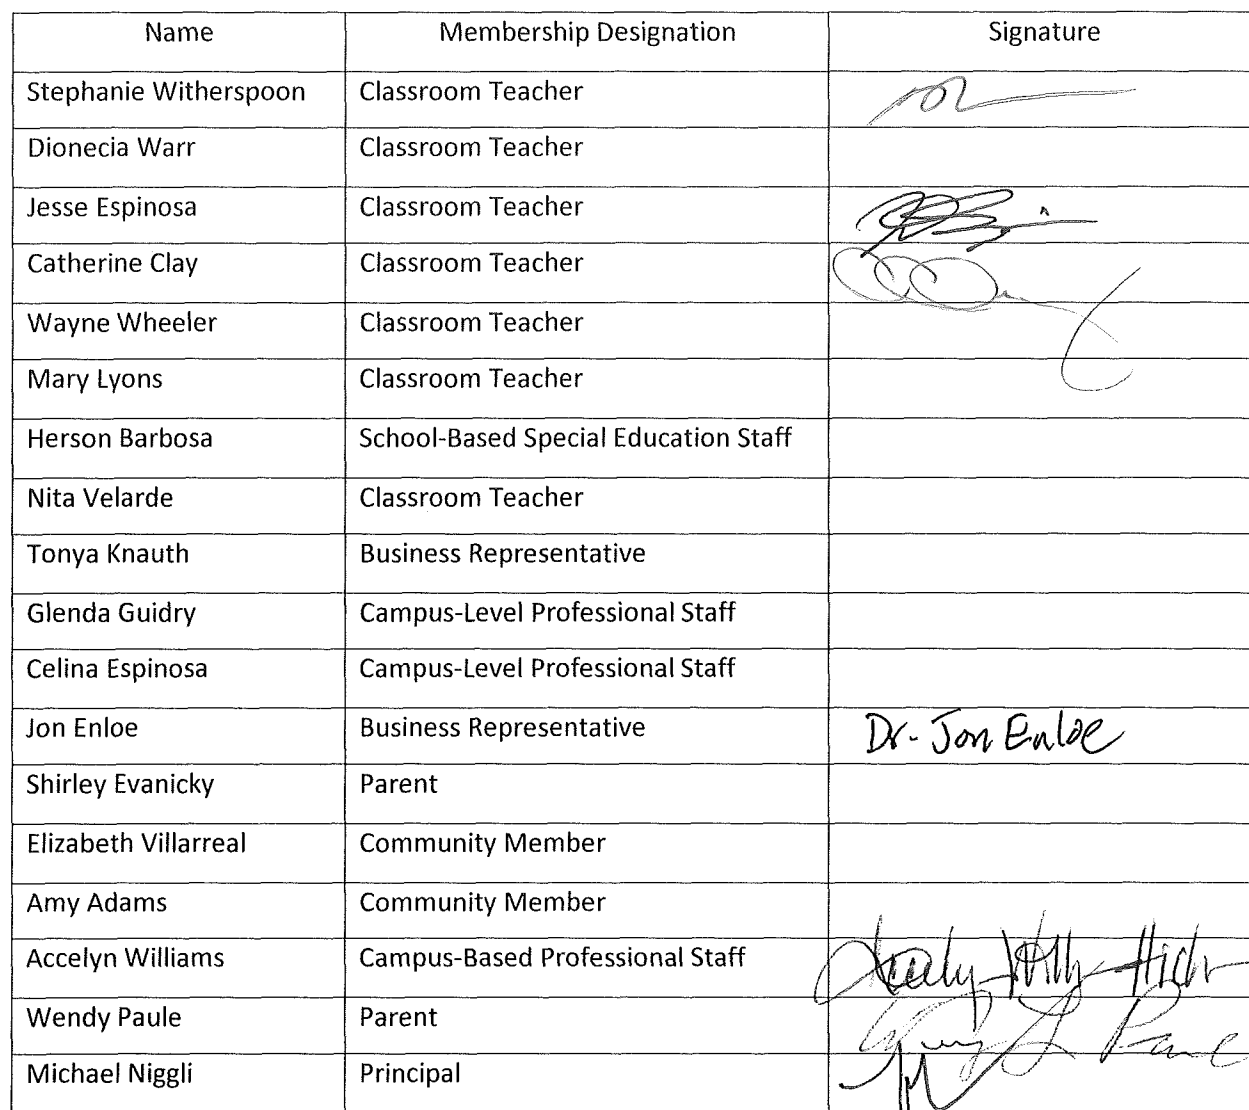 Name Membership Designation Signature
Stephanie Witherspoon Classroom Teacher
Dionecia Warr Classroom Teacher
Jesse Espinosa Classroom Teacher
Catherine Clay Classroom Teacher
Wayne Wheeler Classroom Teacher
Mary Lyons Classroom Teacher
Herson Barbosa School-Based Special Education Staff
Nita Velarde Classroom Teacher
Tonya Knauth Business Representative
Glenda Guidry Campus-Level Professional Staff
Celina Espinosa Campus-Level Professional Staff
Jon Enloe Business Representative Dr. Jon Enloe
Shirley Evanicky Parent
Elizabeth Villarreal Community Member
Amy Adams Community Member
Accelyn Williams Campus-Based Professional Staff
Wendy Paule Parent
Michael Niggli Principal